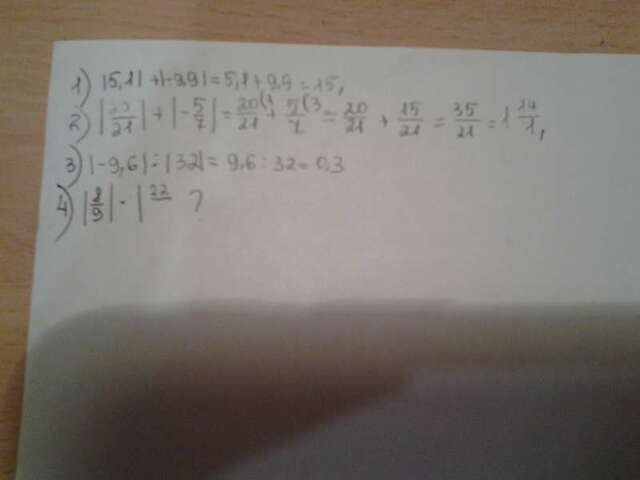 1) |5,1| + |-9,9| = 5,1 + 9,9 = 15,
2) |20/21| + |-5/7| = 20/21 (1 + 5/7 (3 = 20/21 + 15/21 = 35/21 = 1 14/1,
3) |-9,6| : |32| = 9,6 : 32 = 0,3
4) |2/9| · | 22 ?